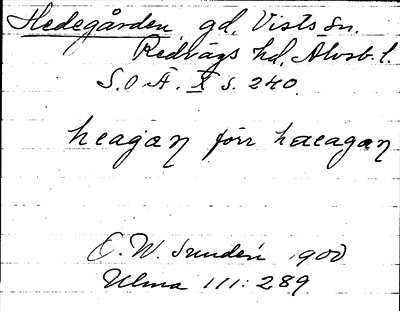 Hedegården gd, Vists sn.
Redvägs hd, Älvsb. l.
S.O.Ä. X s. 240.
heagaŋ förr hæeagaŋ
O. W. Sundén 1900
Ulma 111:289.